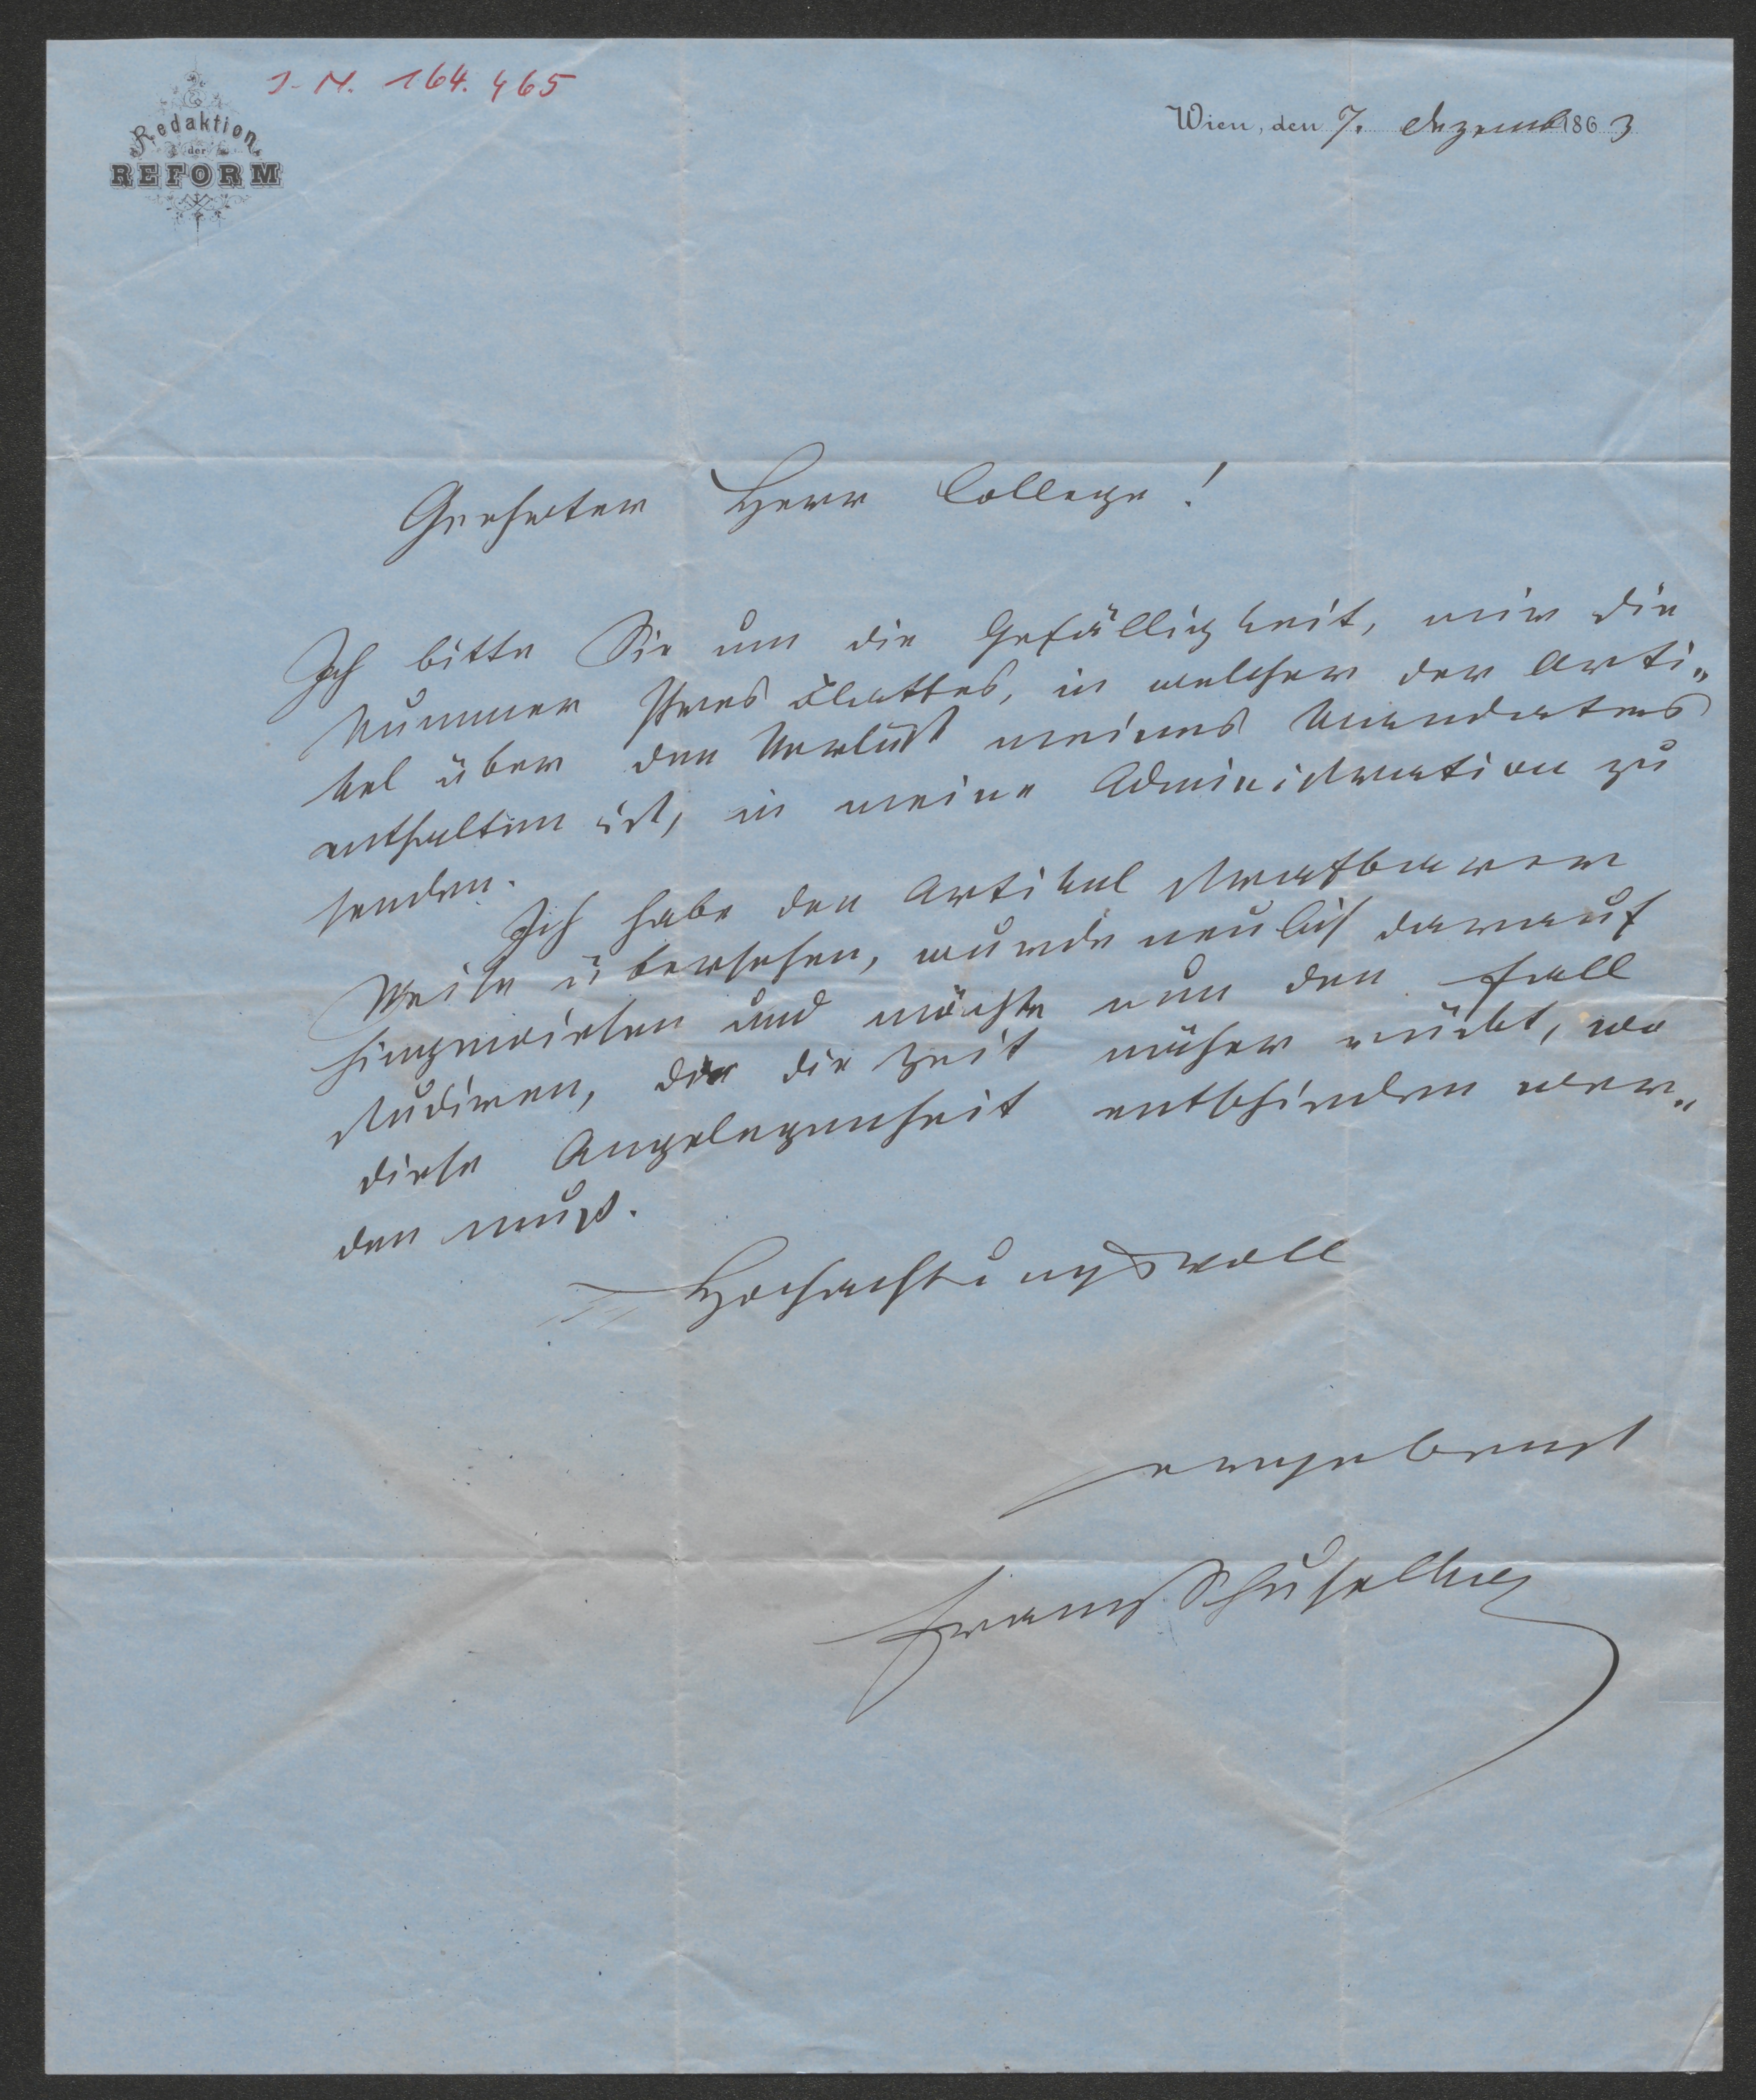 I.N. 164.465
Redaktion
der
REFORM
Wien, den 7. Dezemb 1863
Geehrter Herr College!
Ich bitte Sie um die Gefälligkeit, mir die
Nummer Ihres Blattes, in welcher der Arti„
kel über den Verlust meines Mandates
enthalten ist, in meine Administration zu
senden.
Ich habe den Artikel strafbarer
Weise übersehen, wurde neulich darauf
hingewiesen und möchte nun den Fall
studiren, da die Zeit näher rückt, wo
diese Angelegenheit entschieden wer„
den muß.
Hochachtungsvoll
ergebenst
Franz Schuselka